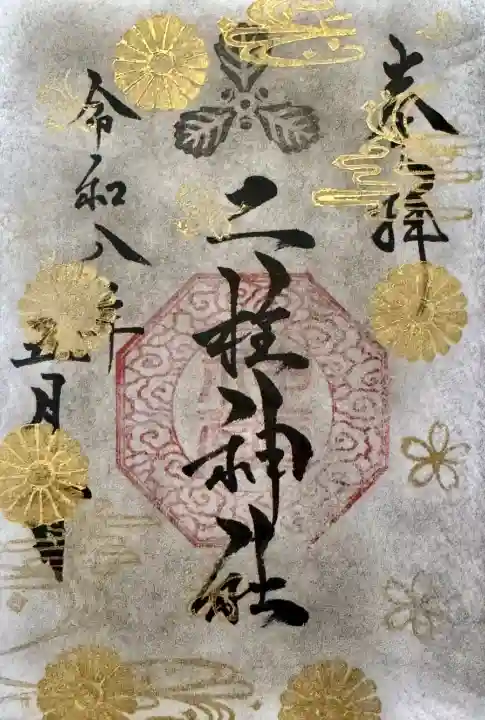 奉拝
二柱神社
令和八年
五月